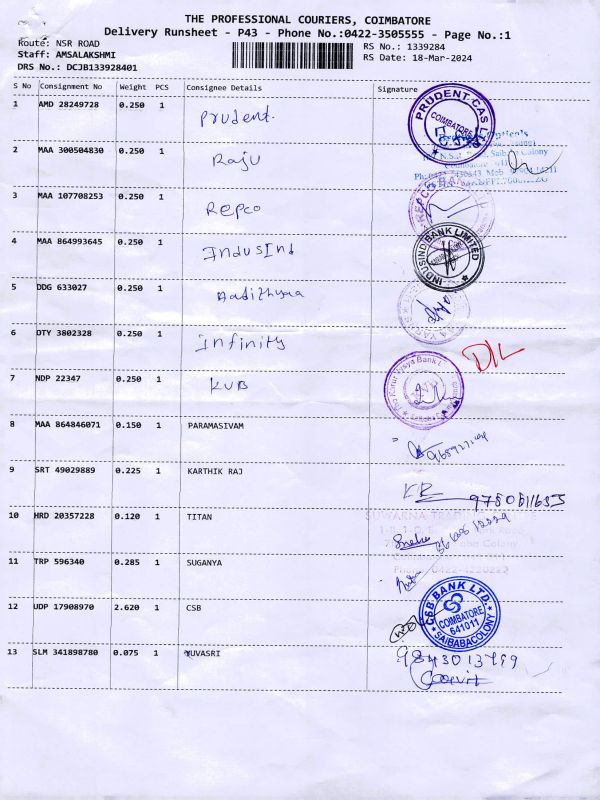 THE PROFESSIONAL COURIERS, COIMBATORE
Delivery Runsheet - P43 - Phone No.:0422-3505555 - Page No.:1
Route: NSR ROAD
RS No.: 1339284
Staff: AMSALAKSHMI
RS Date: 18-Mar-2024
DRS No.: DCJB133928401
S No Consignment No Weight PCS Consignee Details Signature
1 AMD 28249728 0.250 1 Prudent.
PRUDENT CAS LTD
COIMBATORE
2 MAA 300504830 0.250 1 Raju
3 MAA 107708253 0.250 1 Repco
REPCO BANK
4 MAA 864993645 0.250 1 IndusInd
INDUSIND BANK LIMITED
5 DDG 633027 0.250 1 Aadithyaa
6 OTY 3802328 0.250 1 Infinity
7 NDP 22347 0.250 1 KVB
The Karur Vysya Bank L
8 MAA 864846071 0.150 1 PARAMASIVAM
9 SRT 49029889 0.225 1 KARTHIK RAJ
KR
10 HRD 20357228 0.120 1 TITAN
Sneha
11 TRP 596340 0.285 1 SUGANYA
Phone: 0422-4220222
12 UDP 17908970 2.620 1 CSB
CSB BANK LTD.
COIMBATORE
641011
SAIBABACOLONY
13 SLM 341898780 0.075 1 YUVASRI